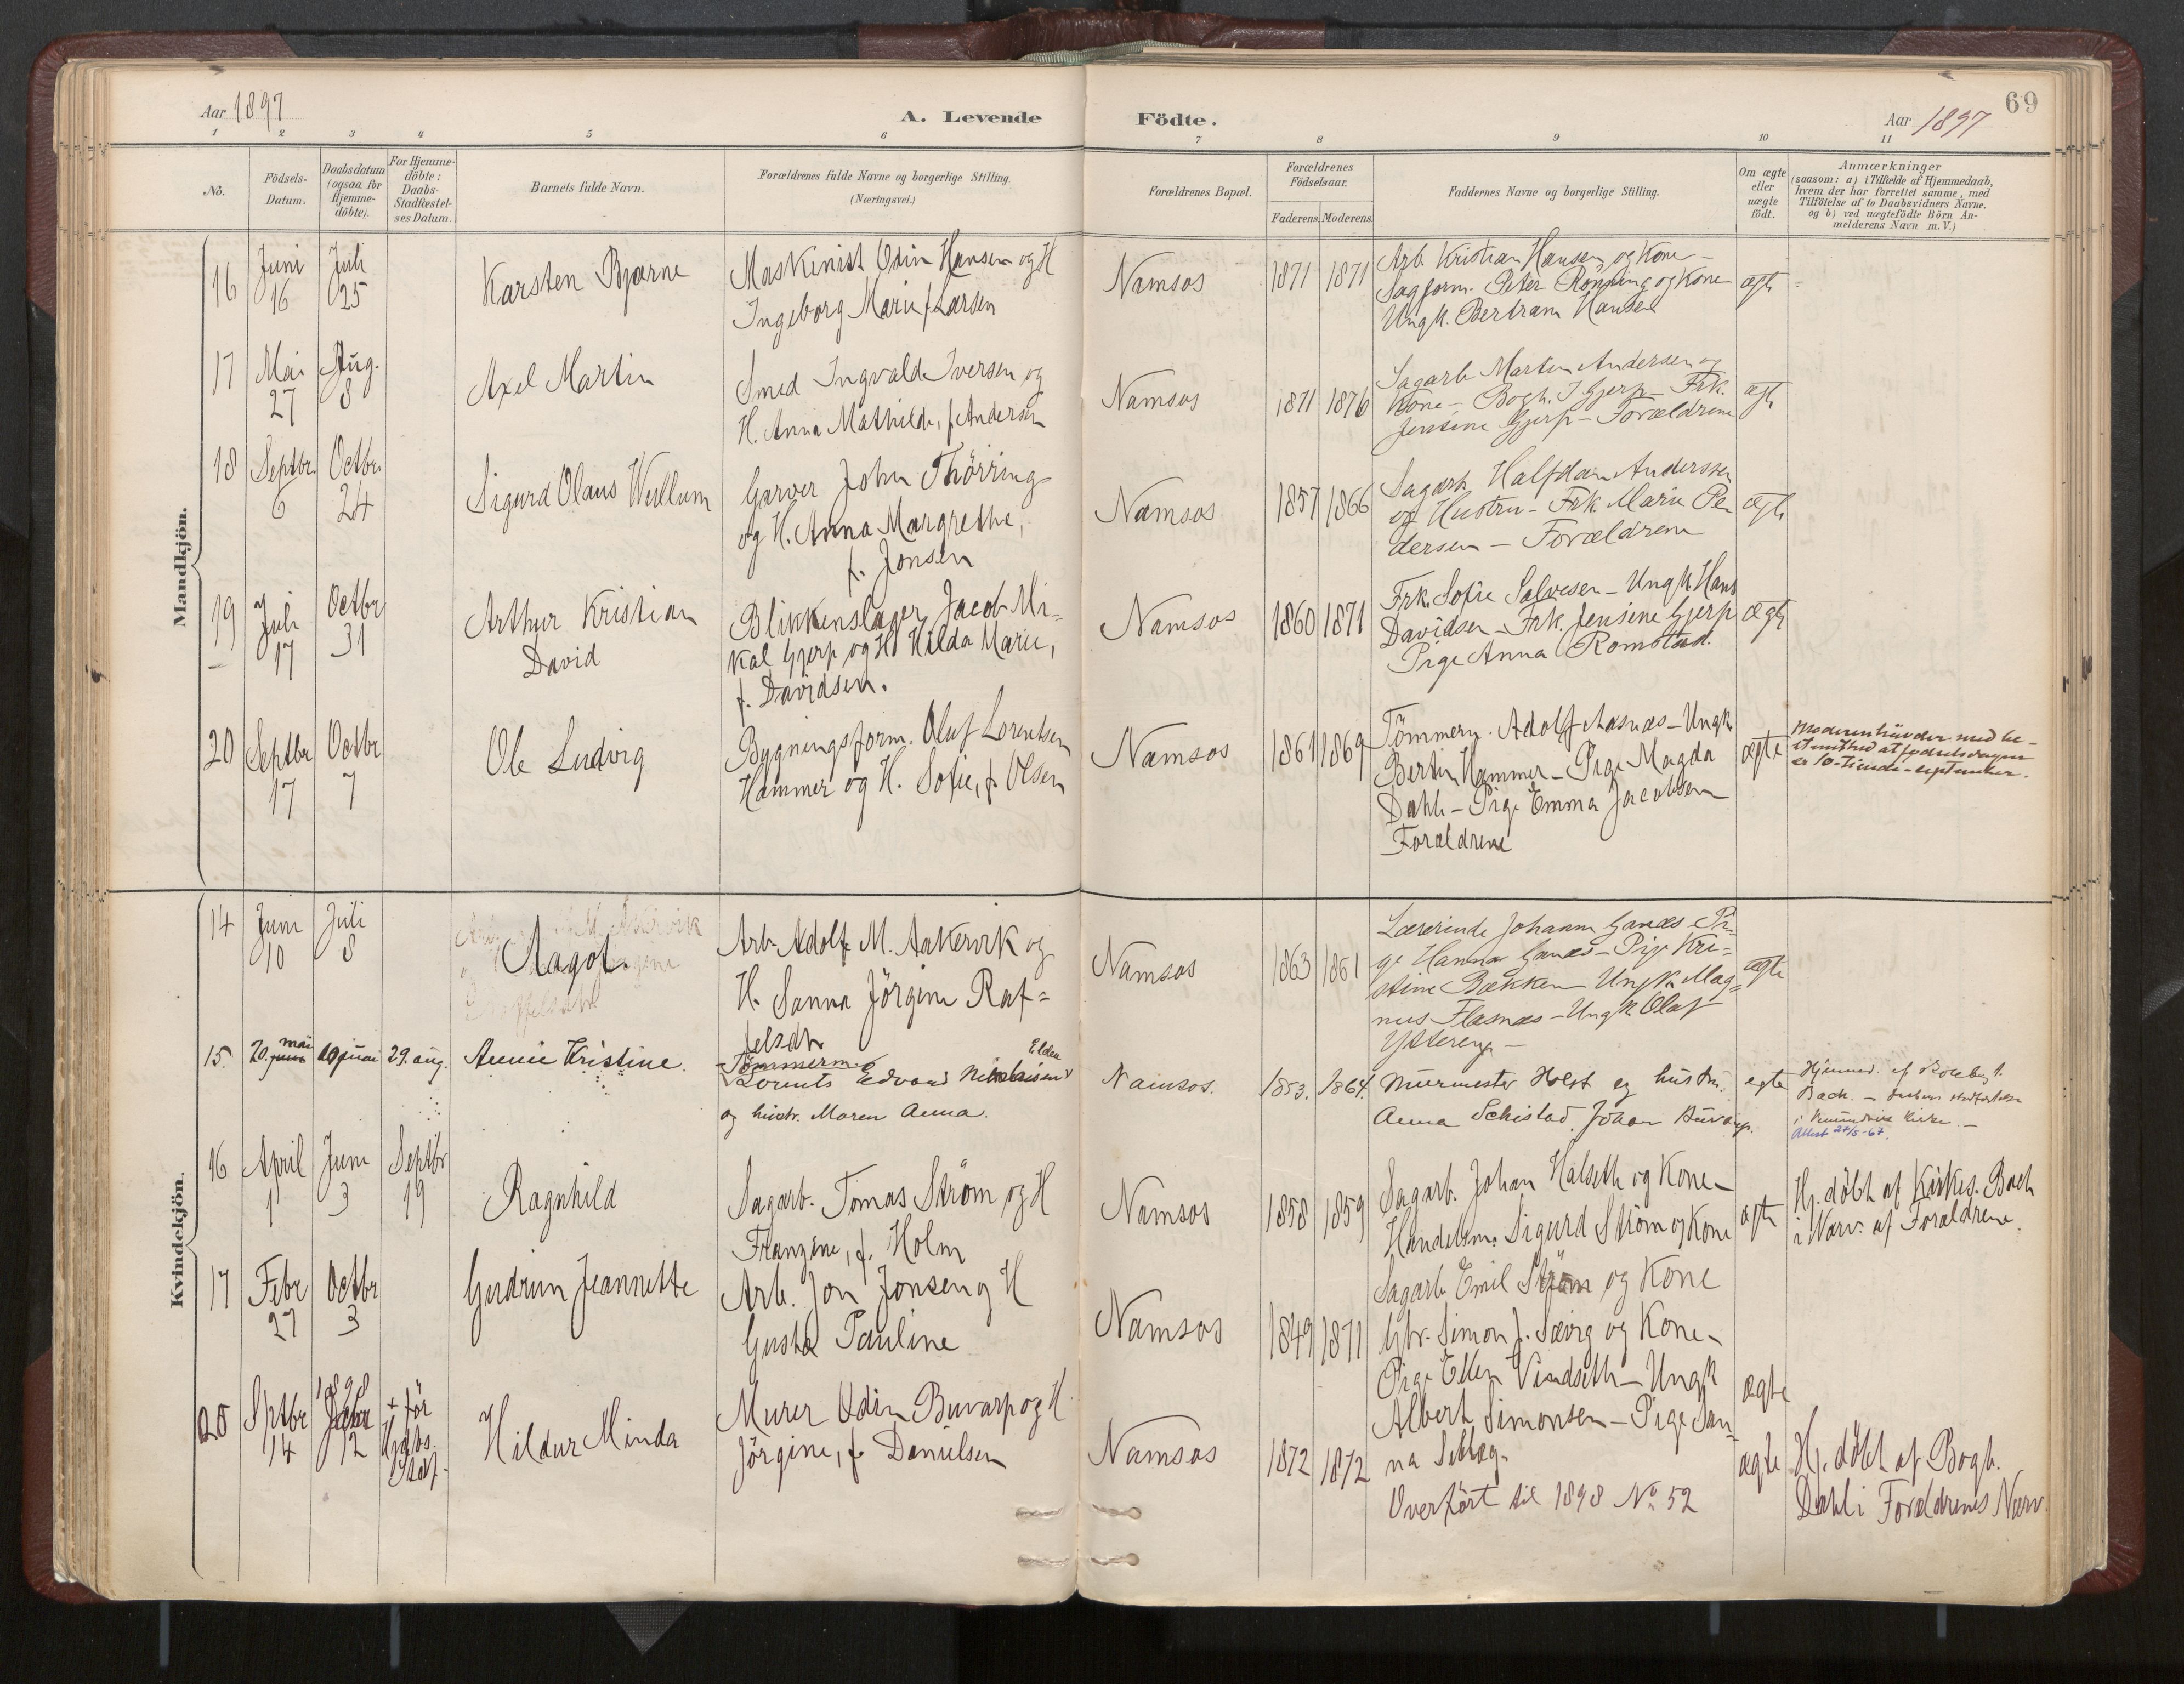 Aar 1897
A. Levende
Födte.
Aar 1897
69
1 2 3 4 5 6 7 8 9 10 11
No.
Födsels-
Datum.
Daabsdatum
(ogsaa for
Hjemme-
döbte).
For Hjemme-
döbte:
Daabs-
Stadfæstel-
ses Datum.
Barnets fulde Navn.
Forældrenes fulde Navne og borgerlige Stilling.
(Næringsvei.)
Forældrenes Bopæl.
Forældrenes
Födselsaar.
Faderens. Moderens.
Faddernes Navne og borgerlige Stilling.
Om ægte
eller
uægte
födt.
Anmærkninger
(saasom: a) i Tilfælde af Hjemmedaab,
hvem der har forrettet samme, med
Tilföielse af to Daabsvidners Navne.
og b) ved uægtefödte Börn An-
melderens Navn m. V.)
Mandkjön.
16
Juni
16
Juli
25
Karsten Bjarne
Maskinist Odin Hansen og H
Ingeborg Marie f. Larsen
Namsos
1871 1871
Arb. Kristian Hansen og Kone -
Sagform. Peter Rönning og Kone
Ungk. Bertram Hansen
ægte
17
Mai
27
Aug.
8
Axel Martin
Smed Ingvald Iversen og
H. Anna Mathilde, f. Andersen
Namsos
1871 1876
Sagarb Martin Andersen og
Kone - Bogh. J Gjerp - Frk.
Jensine Gjerp - Forældrene
ægte
18
Septbr.
6
Octbr.
24
Sigurd Olaus Wullum
Garver John Thörring
og H. Anna Margrethe,
f. Jonsen
Namsos
1857 1866
Sagarb Halfdan Anderssen
og Hustru - Frk Marie Pe
dersen - Forældrene
ægte
19
Juli
17
Octbr
31
Arthur Kristian
David
Blikkenslager Jacob Mi-
kal Gjerp og H Hilda Marie,
f. Davidsen.
Namsos
1860 1871
Frk. Sofie Salvesen - Ungk. Hans
Davidsen - Frk. Jensine Gjerp
Pige Anna Romstad.
ægte
20
Septbr
17
Octbr
7
Ole Ludvig
Bygningsform. Oluf Lorentsen
Hammer og H. Sofie, f. Olsen
Namsos
1861 1869
Tömmerm. Adolf Aasnæs - Ungk
Bertin Hammer - Pige Magda
Dahle - Pige Emma Jacobsen
Forældrene
ægte
Moderen hævder med be-
stemthed at fødselsdagen
er 10 - tiende - september.
Kvindekjön.
14
Juni
10
Juli
8
Aagot.
Arb. Adolf M. Aakervik og
H. Sanna Jörgine Raf=
felsdtr
Namsos
1863 1861
Lærerinde Johanna Ganæs Pi-
ge Hanna Ganæs - Pige Kri-
stine Bækken Ungk. Mag-
nus Flasnæs - Ungk Olaf
Ystereng -
ægte
15.
mai
20. juni
10 juni
29. aug.
Annie Kristine.
Tömmerm.
Elden
Lorents Edvard Nikolaisen
og hustr. Maren Anna.
Namsos.
1853. 1864.
Muurmester Holst og hustru.
Anna Schistad. Johan Buvarp.
egte
Bach.
Attest 27/5-67.
16
April
1
Juni
3
Septbr
19
Ragnhild
Sagarb. Tomas Ström og H
Franzine, f. Holm
Namsos
1858 1859
Sagarb. Johan Halseth og Kone -
Handelsm. Sigurd Ström og Kone
Sagarb Emil Ström og Kone
ægte
Hj. döbt af Kirkes. Bach
i Nærv. af Forældrene.
17
Febr
27
Octbr
3
Gudrun Jeannette
Arb. Jon Jonsen og H
Gusta Pauline
Namsos
1849 1871
Gbr. Simon J. Sævig og Kone -
Pige Ellen Vindseth - Ungk
Albert Simonsen - Pige San
na Selæg.
ægte
20
Sptbr
14
1898
Jabr
12
+ för
Hjdbs
Staf.
Hildur Minda
Murer Odin Buvarp og H
Jörgine, f. Danielsen
Namsos
1872 1872
Overfört til 1898 No 52
ægte
Hj. döbt af Bogh.
Dahl i Forældrenes Nærv.